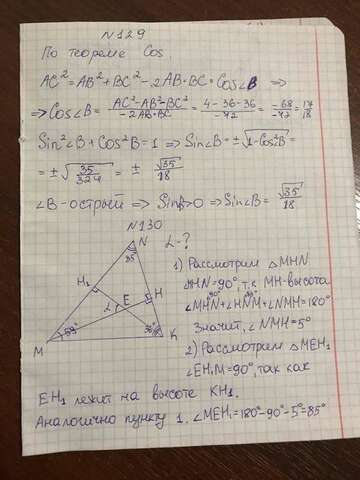 N129
По теореме Cos
AC² = AB² + BC² - 2AB·BC·Cos∠B ⇒
⇒ Cos∠B = (AC²-AB²-BC²)/(-2AB·BC) = (4-36-36)/(-72) = (-68)/(-72) = 17/18
Sin²∠B + Cos²B = 1 ⇒ Sin∠B = ±√(1-Cos²B) =
= ±√(35/324) = ± √35/18
∠B - острый ⇒ Sinβ>0 ⇒ Sin∠B = √35/18
N130
N
85
L-?
1) Рассмотрим △MHN
∠MHN=90°, т.к MH-высота
90°
∠MHN+∠HNM+∠NMH=180°
Значит, ∠NMH=5°
2) Рассмотрим △MEH₁
∠EH₁M=90°, так как
H₁
E
H
M
59°
36°
K
EH₁ лежит на высоте KH₁.
Аналогично пункту 1. ∠MEH₁=180°-90°-5°=85°